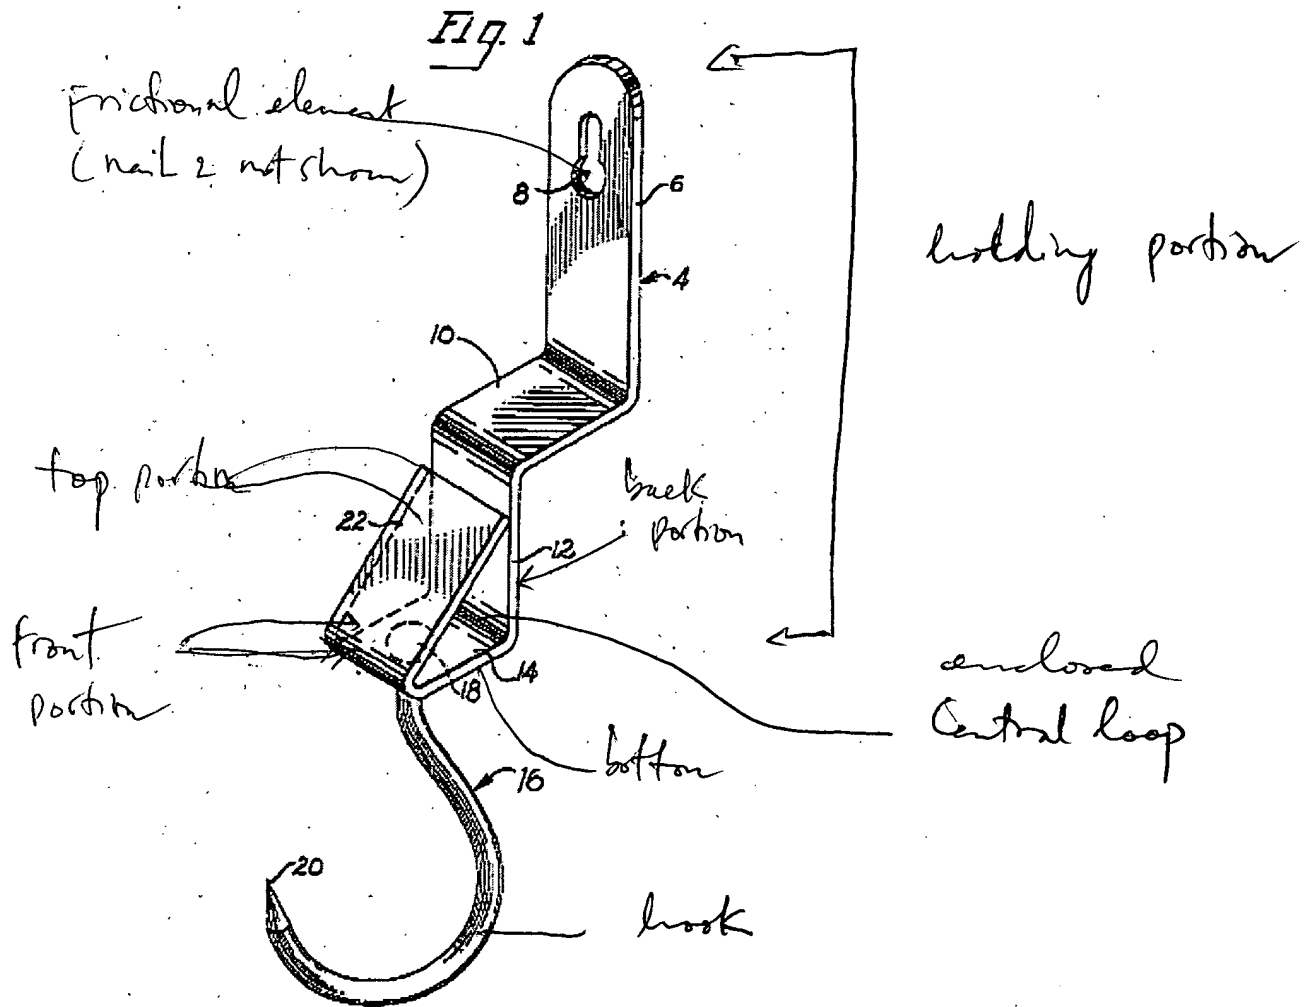 Fig. 1
frictional element
(nail 2 not shown)
8
6
holding portion
4
10
top portion
back
portion
22
12
front
portion
enclosed
Central loop
14
18
bottom
16
20
hook